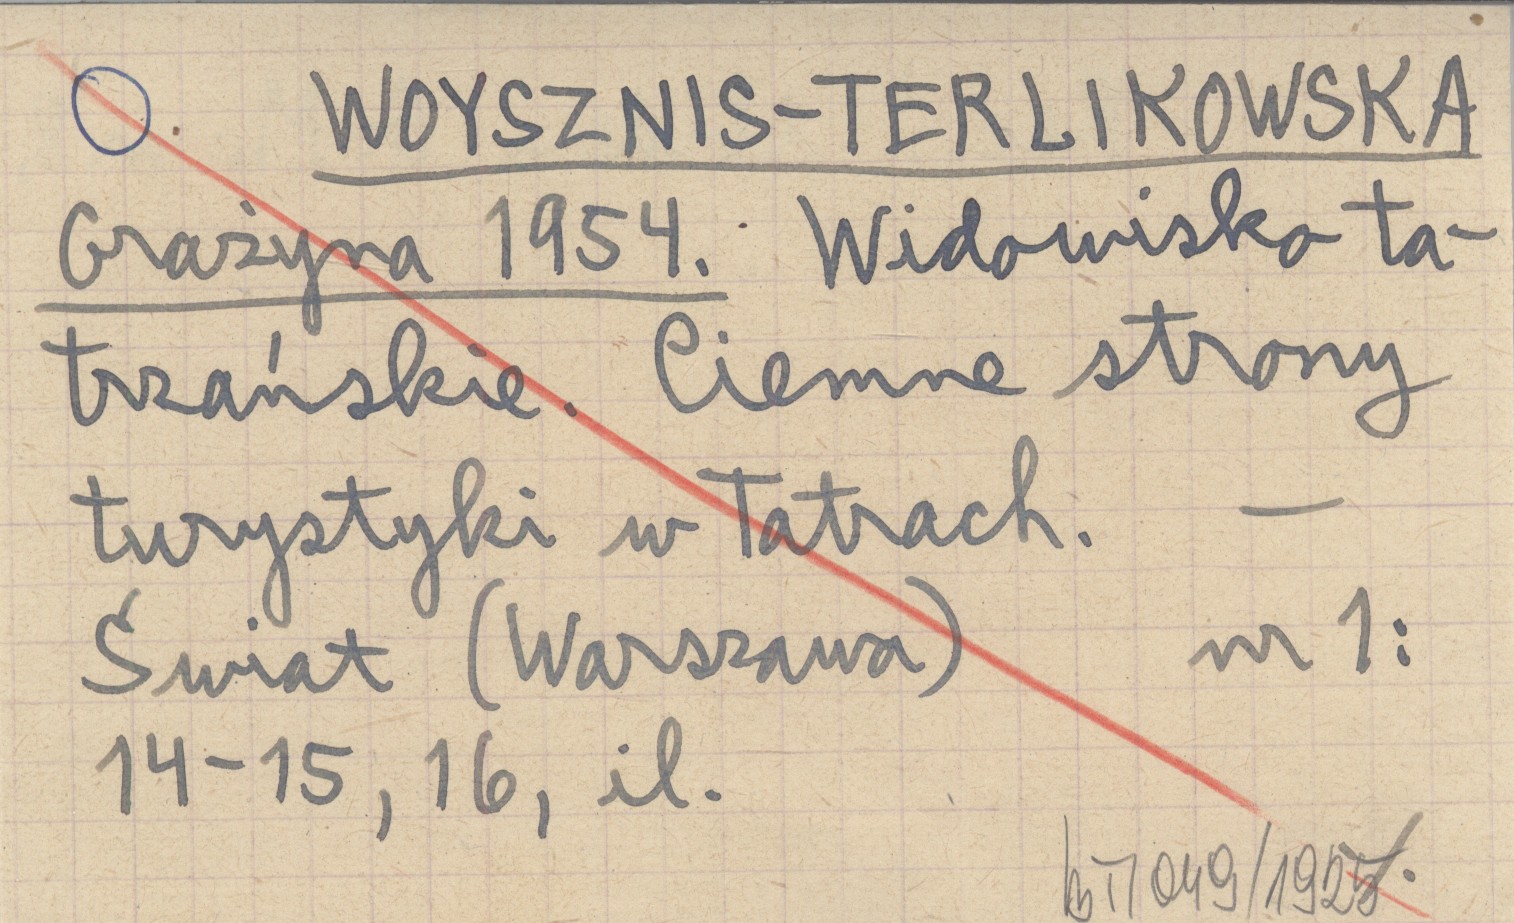 WOYSZNIS-TERLIKOWSKA
Grażyna 1954. Widowisko ta-
trzańskie. Ciemne strony
turystyki w Tatrach. —
Świat (Warszawa) nr 1:
14-15, 16, il.